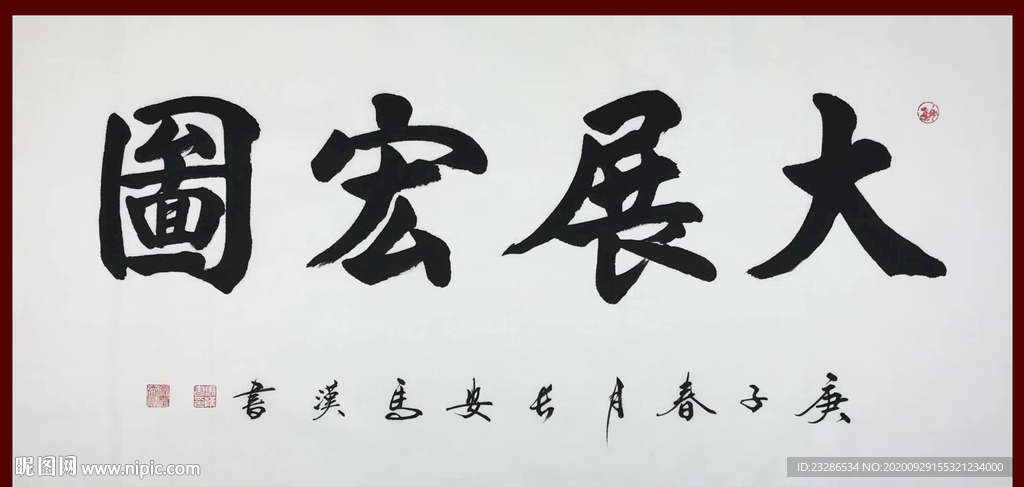 大展宏圖
庚子春月長安馬漢書
昵图网 www.nipic.com
ID:23286534 NO:20200929155321234000